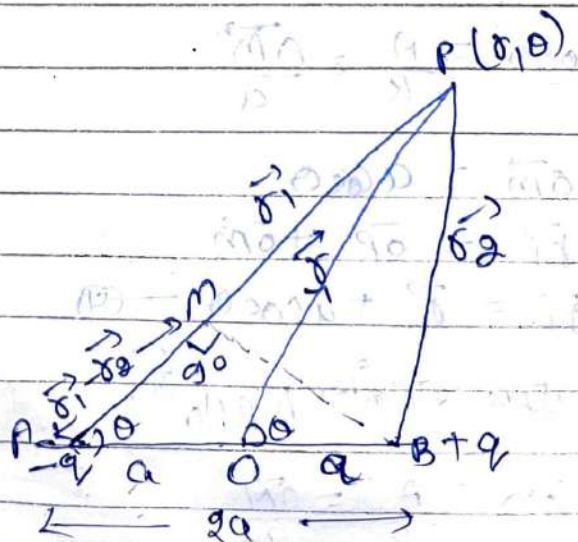 P(r, θ)
r⃗₁
r⃗
r⃗2
M
r⃗₁ - r⃗2
90
A
θ
θ
-q
a
O
a
B+q
2a